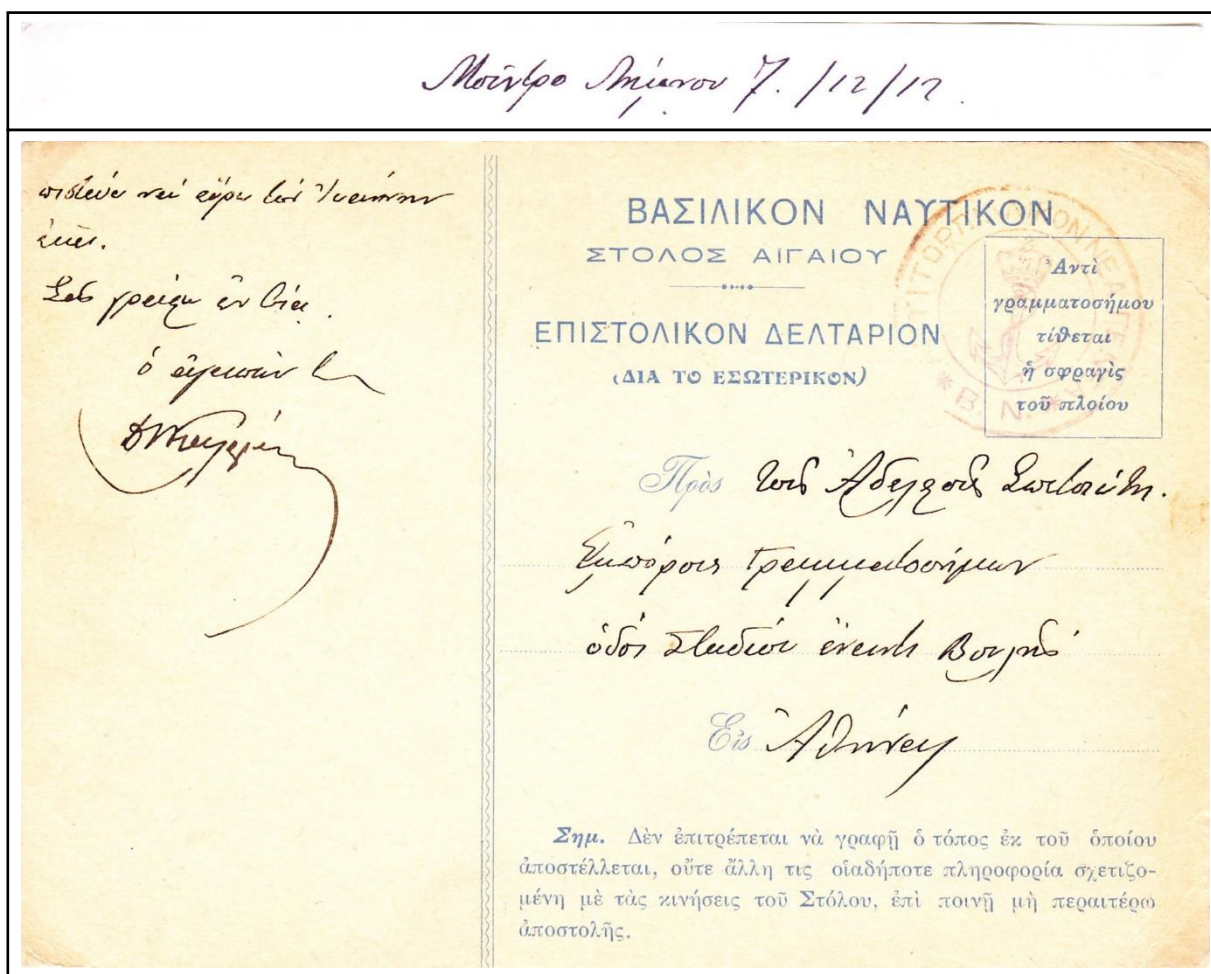 Μούντρο Λήμνου 7. /12/12.
πιστεύω νά εὕρω τόν Ἰωάννην
ἐκεῖ.
Σᾶς γράφω ἐν βίᾳ.
ὁ ἀγαπῶν
ΒΑΣΙΛΙΚΟΝ ΝΑΥΤΙΚΟΝ
ΣΤΟΛΟΣ ΑΙΓΑΙΟΥ
ΕΠΙΣΤΟΛΙΚΟΝ ΔΕΛΤΑΡΙΟΝ
(ΔΙΑ ΤΟ ΕΣΩΤΕΡΙΚΟΝ)
Ἀντὶ
γραμματοσήμου
τίθεται
ἡ σφραγὶς
τοῦ πλοίου
* Β. Ν. *
Πρὸς τούς Ἀδελφούς
Ἐμπόρους Γραμματοσήμων
ὁδός Σταδίου ἔναντι Βουλῆς
Εἰς Ἀθήνας
Σημ. Δὲν ἐπιτρέπεται νὰ γραφῇ ὁ τόπος ἐκ τοῦ ὁποίου
ἀποστέλλεται, οὔτε ἄλλη τις οἱαδήποτε πληροφορία σχετιζο-
μένη μὲ τὰς κινήσεις τοῦ Στόλου, ἐπὶ ποινῇ μὴ περαιτέρω
ἀποστολῆς.